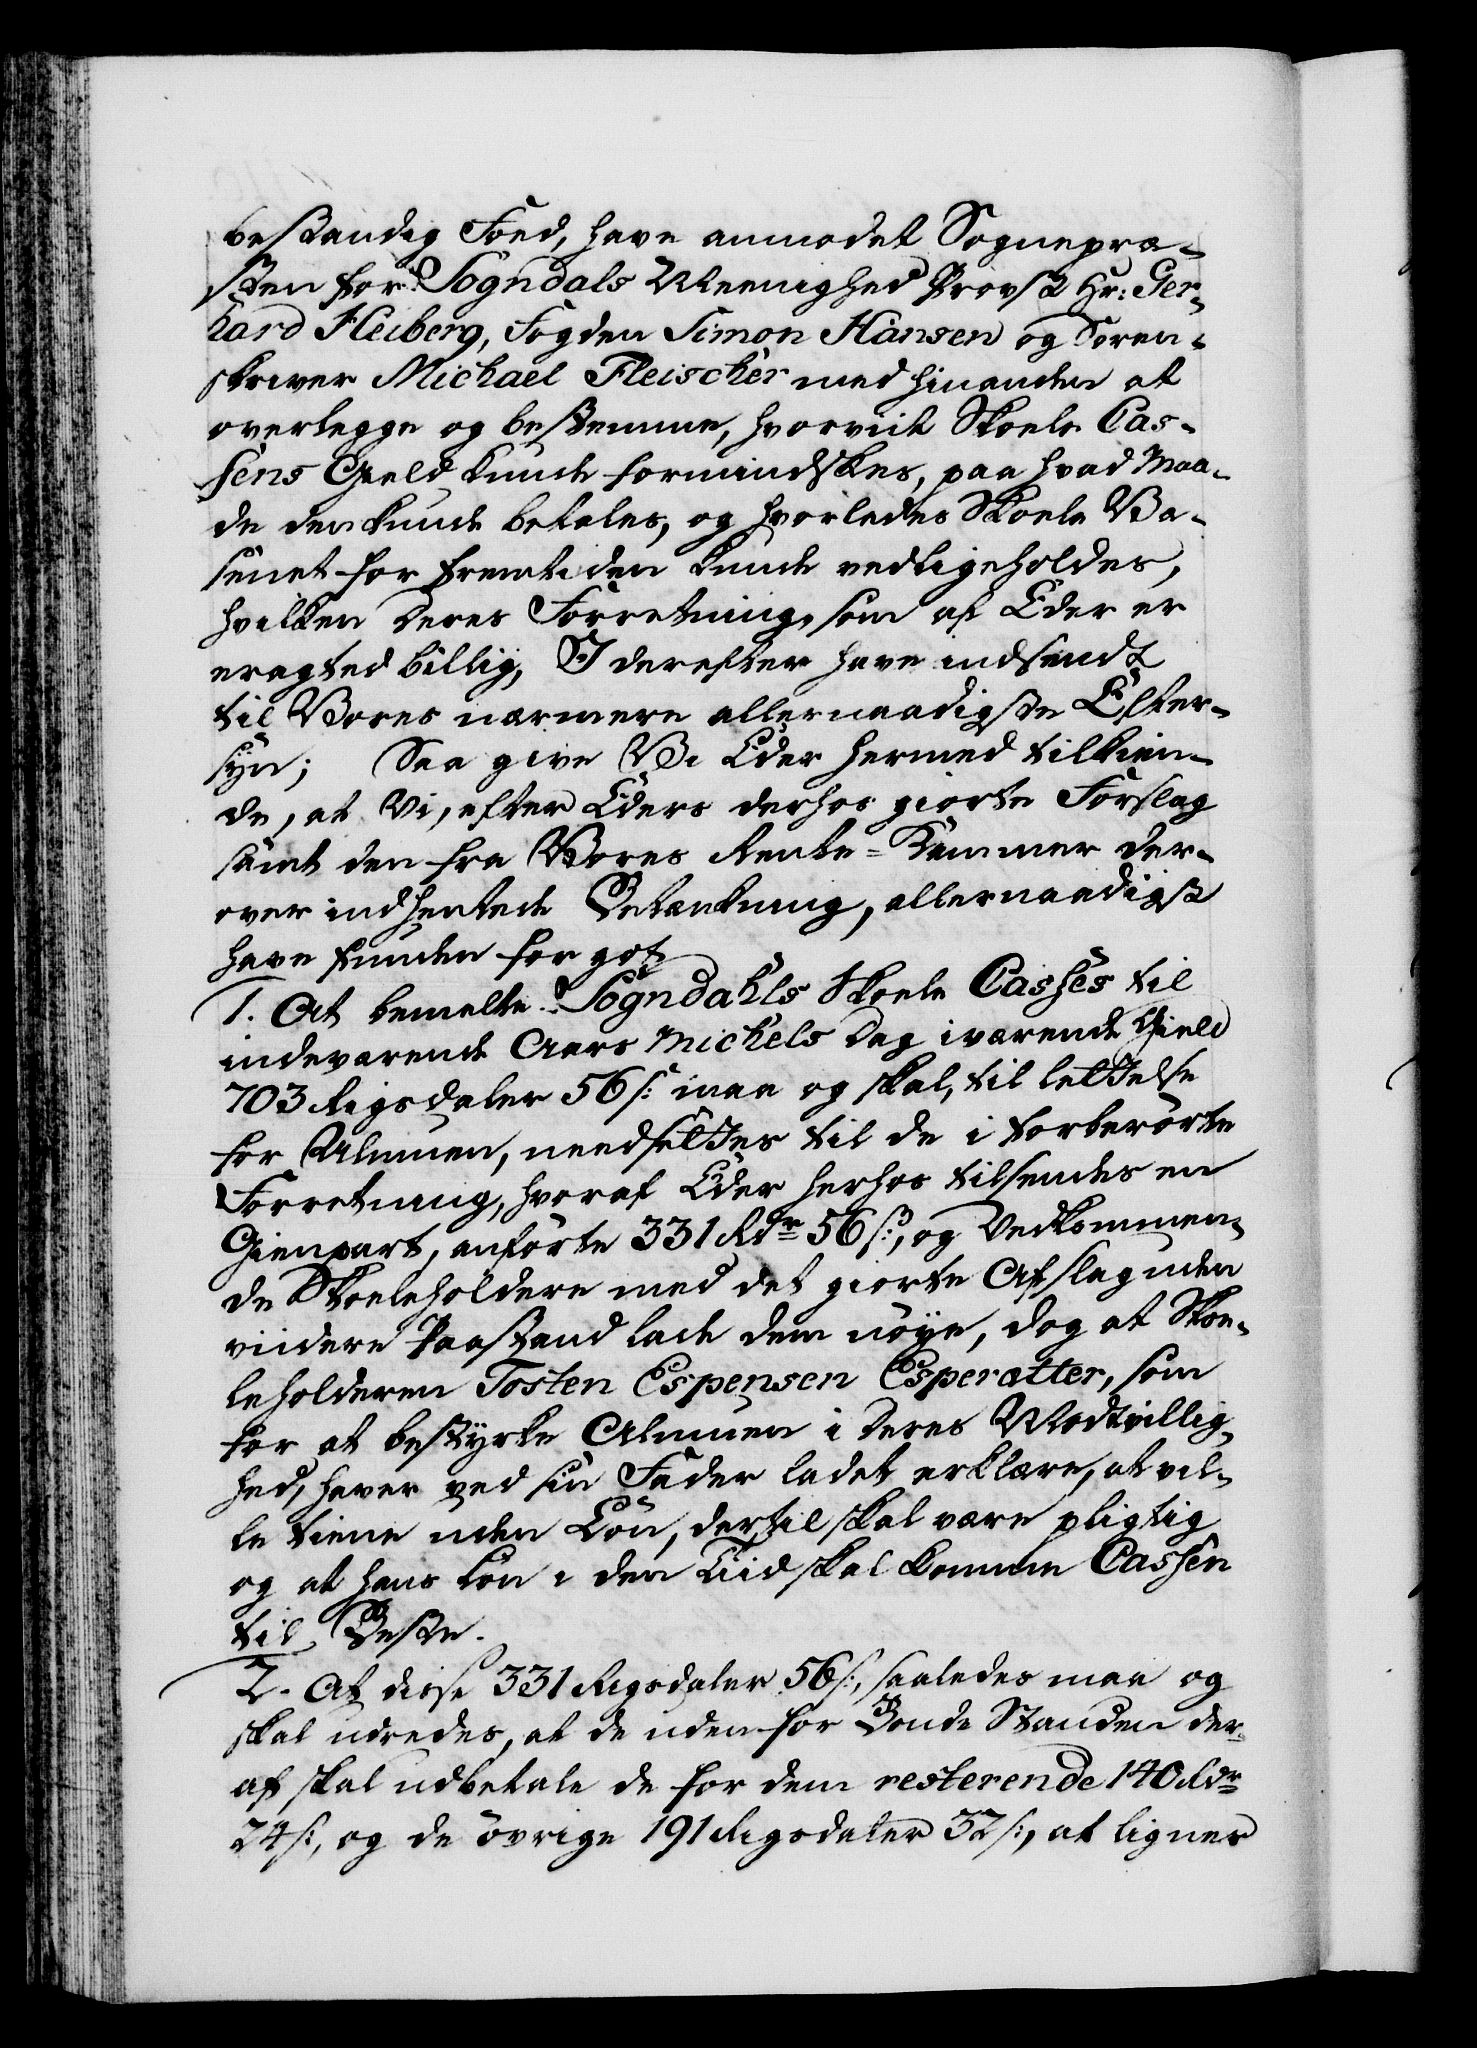 bestandig Foed, have anmodet Sognepræ-
sten for Sogndals Meenighed Provst Hr: Ger-
hard Heiberg, Fogden Simon Hansen og Soren-
skriver Michael Fleischer med hinanden at
overlegge og bestemme, hvorviit Skoele Cas-
sens Gield kunde formindskes, paa hvad Maa-
de den kunde betales, og hvorledes Skoele Væ-
senet for fremtiden kunde vedligeholdes,
hvilken deres Forretning, som af Eder er
eragted billig, I derefter have indsendt
til Vores nærmere allernaadigste Efter-
syn; Saa give Vi Eder hermed tilkien-
de, at Vi, efter Eders derhos giorte Forslag
samt den fra Vores Rente-Kammer der-
over indhentede Betænkning, allernaadigst
have funden for got
1. At bemelte Sogndahls Skoele Casses til
indeværende Aars Michels Dag i værende Gield
703 Rigsdaler 56 s: maa og skal, til lettelse
for Almuen, needsettes til de i forberørte
Forretning, hvoraf Eder herhos tilsendes en
Gienpart, anførte 331 Rdr 56 s:, og Vedkommen-
de Skoeleholdere med det giorte Afslag uden
viidere Paastand lade dem nöye, dog at Skoe-
leholderen Tosten Espensen Esperætter, som
for at bestyrke Almuen i deres Modvillig-
hed, haver ved sin Fader ladet erklære, at vil-
le tiene uden Løn, dertil skal være pligtig
og at hans Løn i den Tiid skal komme Cassen
til Beste.
2. At disse 331 Rigsdaler 56 s:, saaledes maa og
skal udredes, at de uden for Bonde Standen der-
af skal udbetale de for dem resterende 140 Rdr
24 s:, og de øvrige 191 Rigsdaler 32 s:, at lignes